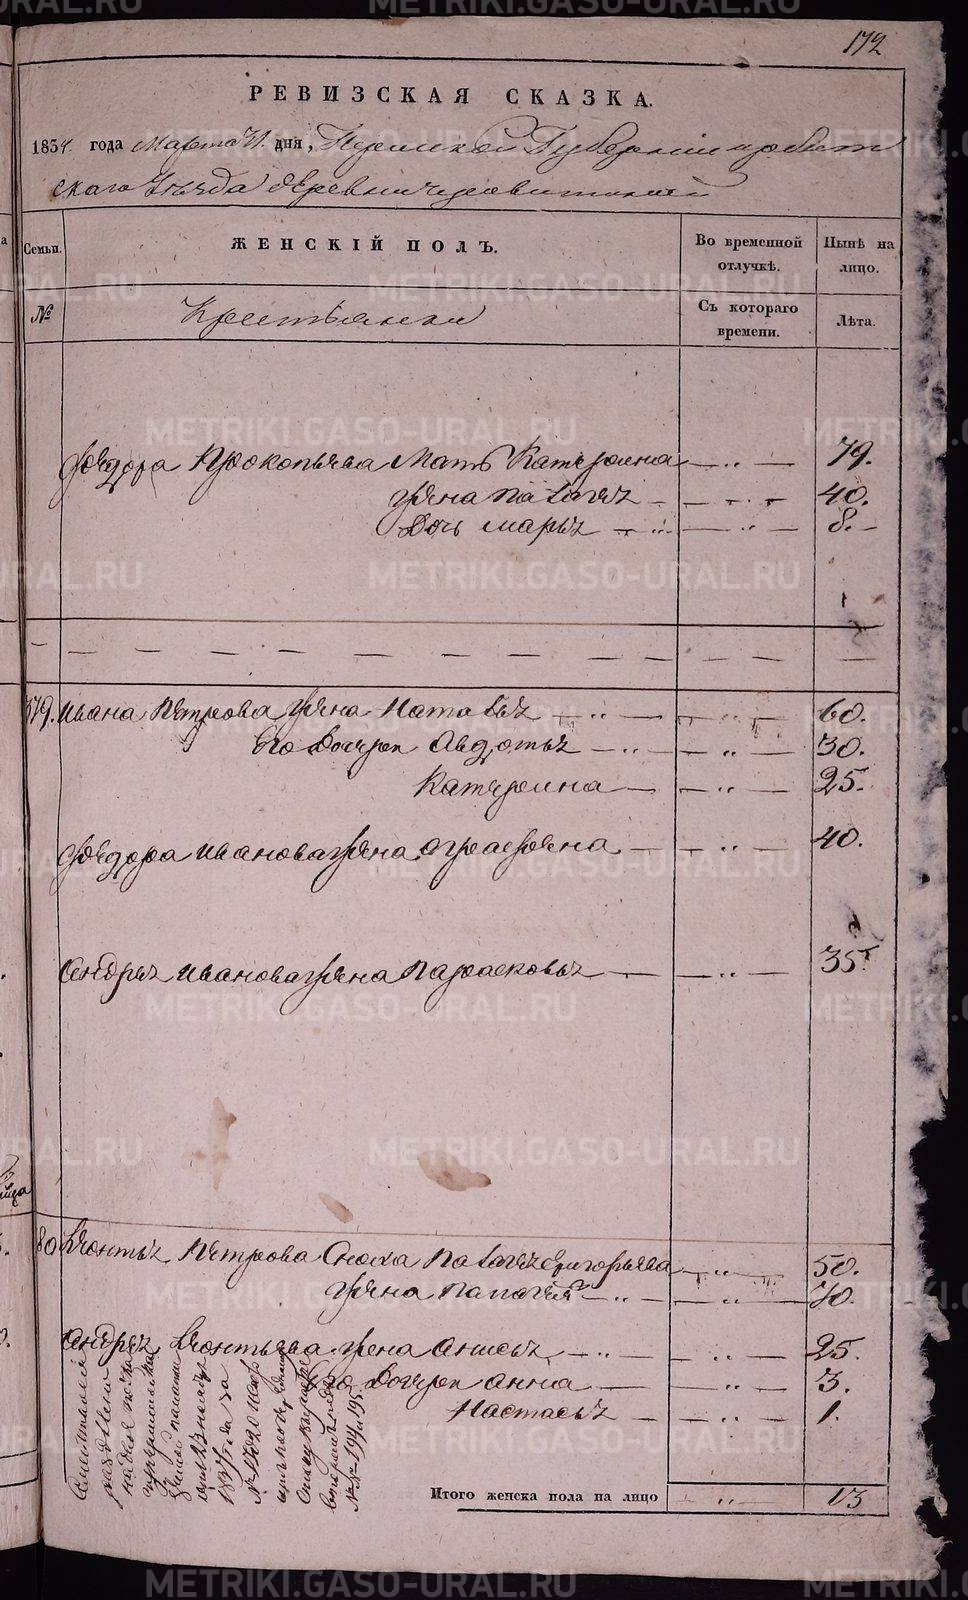 172
РЕВИЗСКАЯ СКАЗКА.
1834. года Марта 21. дня, Пермской Губернии Ирбит
скаго Уезда деревни
Семьи. ЖЕНСКІЙ ПОЛЪ. Во временной отлучкѣ. Нынѣ на лицо.
№ Крестьянски Съ котораго времени. Лѣта.
Федора Прокопьева Мать Катерина — „ — 79.
жена Палагея — — 40.
Дочь марья — „ — „ — 8.
579. Ивана Петрова жена Наталья — „ — „ — 60.
Его Дочери Авдотья — „ — „ — 30.
Катерина — — „ — 25.
Федора Иванова жена Аграфена — — „ — 40.
Андрея Иванова жена Парасковья — — „ — 35.
80 Леонтья Петрова Сноха Палагея Григорьева — „ — 50.
жена Палагея — „ — — „ — 70.
Андрея Леонтьева жена Анисья — „ — — „ — 25.
Его Дочери Анна — — „ — 3.
Настасья — — „ — 1.
Итого женска пола на лицо — „ — 13
METRIKI.GASO-URAL.RU